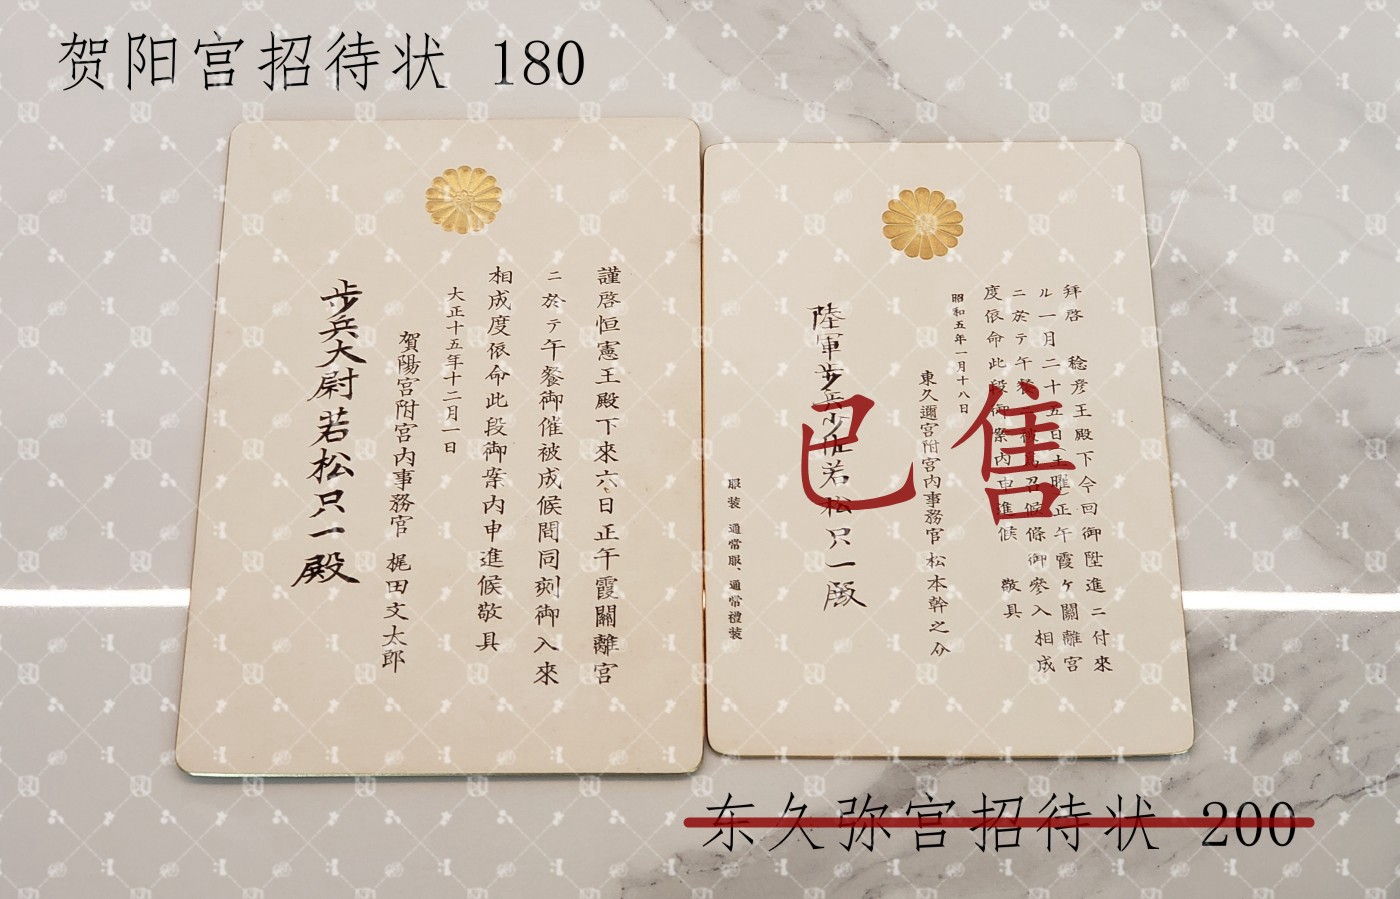 贺阳宫招待状 180
謹啓恒憲王殿下來六日正午霞關離宮
ニ於テ午餐御催被成候間同刻御入來
相成度依命此段御案内申進候敬具
大正十五年十二月一日
賀陽宮附宮内事務官 梶田文太郎
步兵大尉若松只一殿
拜啓 稔彦王殿下今回御陞進ニ付來
ル一月二十五日土曜正午霞ケ關離宮
ニ於テ午餐被召候條御參入相成
度依命此段御案内申進候 敬具
昭和五年一月十八日
東久邇宮附宮内事務官 松本幹之介
陸軍步兵少佐若松只一殿
服装 通常服、通常禮装
已售
东久弥宫招待状 200